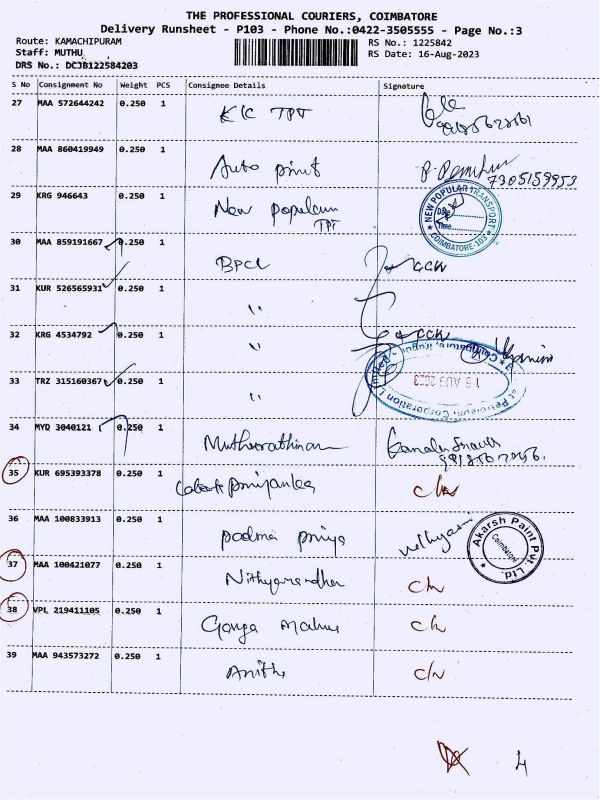 THE PROFESSIONAL COURIERS, COIMBATORE
Delivery Runsheet - P103 - Phone No.:0422-3505555 - Page No.:3
Route: KAMACHIPURAM
RS No.: 1225842
Staff: MUTHU
RS Date: 16-Aug-2023
DRS No.: DCJB122584203
S No Consignment No Weight PCS Consignee Details Signature
27 MAA 572644242 0.250 1 KK TPT
28 MAA 860419949 0.250 1 Auto print
7305159953
29 KRG 946643 0.250 1 New popular
TPT
NEW POPULAR TRANSPORT
Date
Time
COIMBATORE-103
30 MAA 859191667 0.250 1 BPCL
31 KUR 526565931 0.250 1 "
32 KRG 4534792 0.250 1 "
33 TRZ 315160367 0.250 1 "
16 AUG 2023
34 MYD 3040121 0.250 1 Muthurathinam
35 KUR 695393378 0.250 1 Priyanka c/n
36 MAA 100833913 0.250 1 padma priya
Akarsh Paint Pvt. Ltd
Coimbatore
37 MAA 100421077 0.250 1 c/n
38 VPL 219411105 0.250 1 Ganga c/n
39 MAA 943573272 0.250 1 Anitha c/n
4